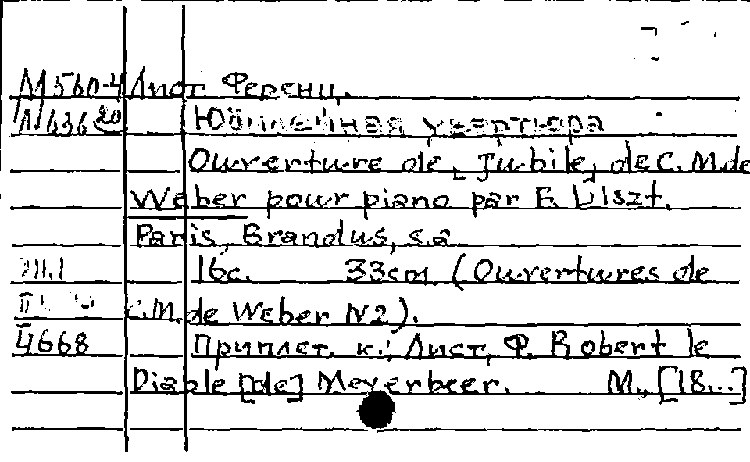 М560-4 Лист Ференц.
Юбилейная увертюра
Ouverture de „Jubile„ de C. M. de
Weber pour piano par F. Liszt.
Paris, Brandus, s.a
16с. 33cm. (Ouvertures de
C.M. de Weber N2).
4668 Приплет. к.: Лист, Ф. Robert le
Diable [de] Meyerbeer. М., [18...]